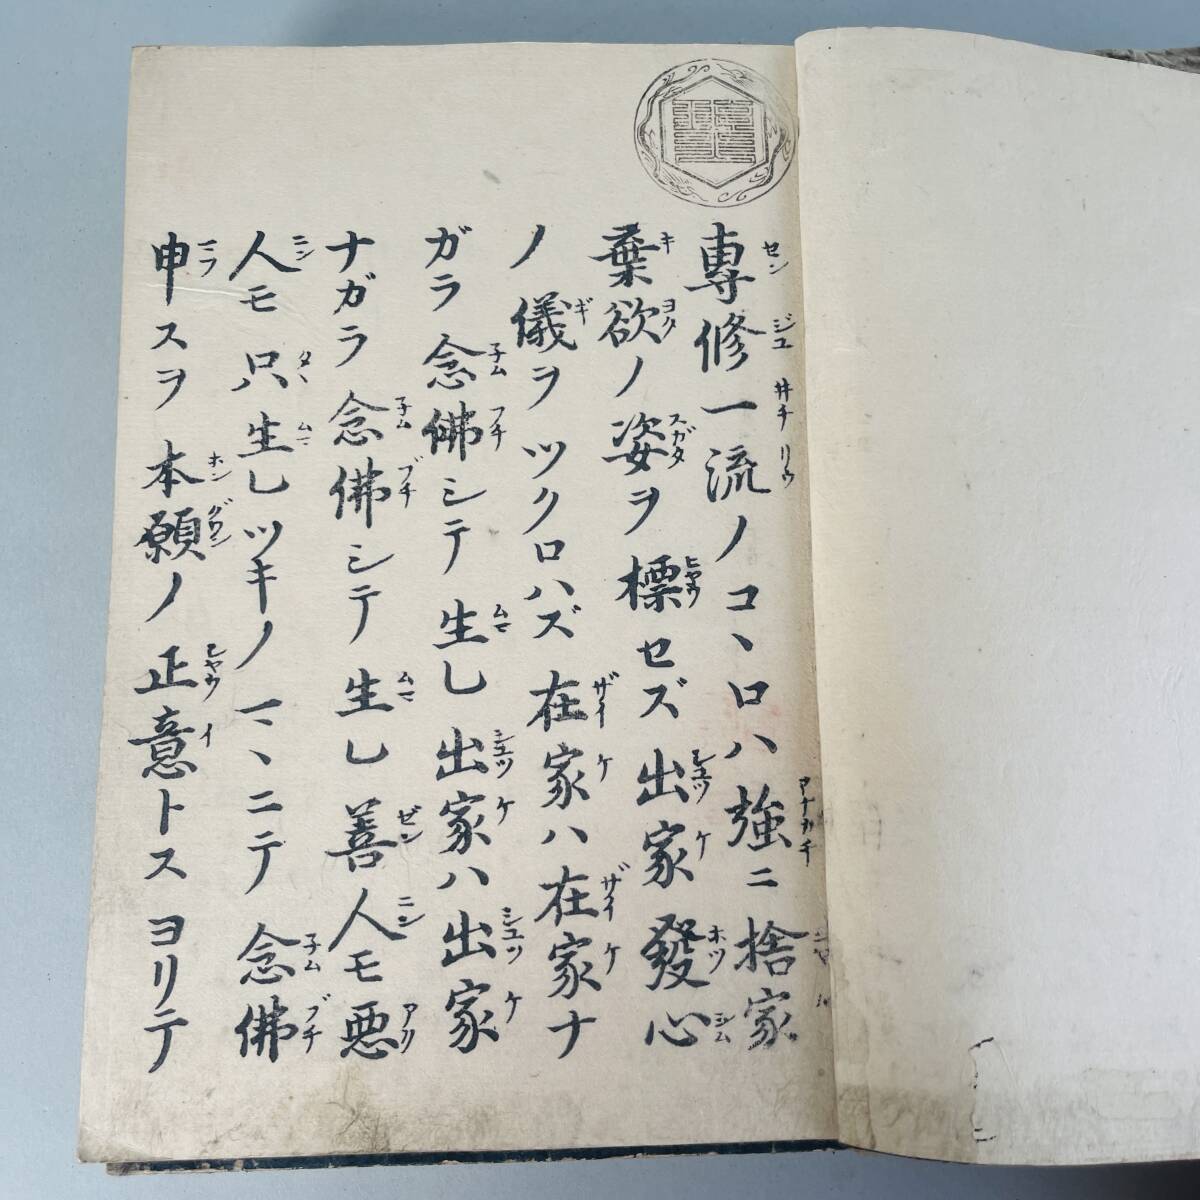 專修一流ノコヽロハ強ニ捨家
棄欲ノ姿ヲ標セズ出家發心
ノ儀ヲツクロハズ在家ハ在家ナ
ガラ念佛シテ生レ出家ハ出家
ナガラ念佛シテ生レ善人モ悪
人モ只生レツキノマヽニテ念佛
申スヲ本願ノ正意トスヨリテ